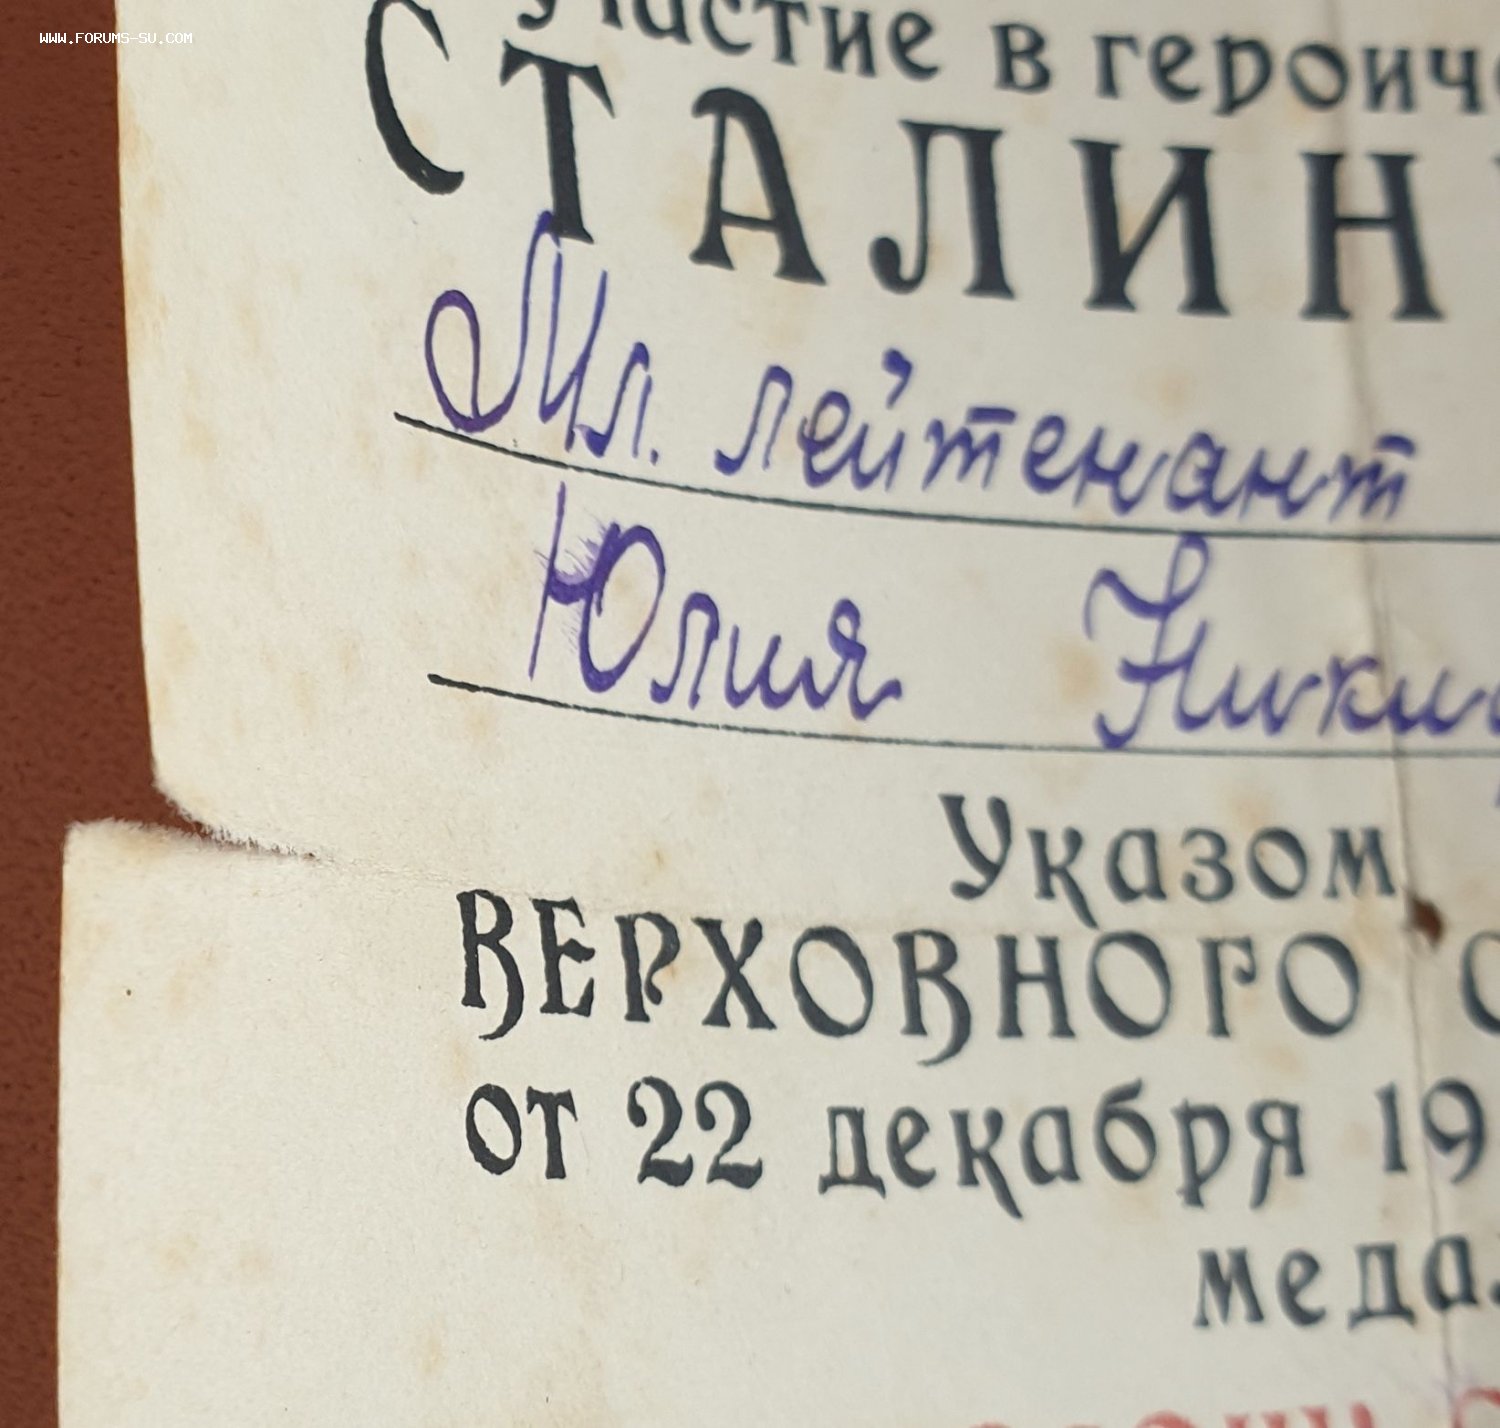 WWW.FORUMS-SU.COM
участие в героиче
СТАЛИН
Мл. лейтенант
Юлия Ники
Указом
ВЕРХОВНОГО С
от 22 декабря 19
меда